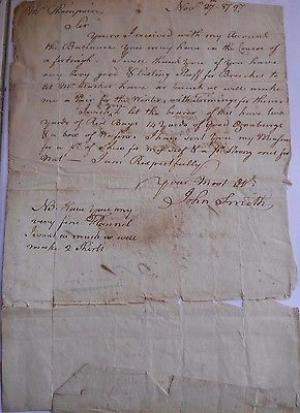 Mr Thompson Novr 27th 1797
Sir
Yours I received with my Account
the Ballance you may have in the Course of
a fortnight. I will thank you if you have
any very good & lasting Stuff for Breeches to
let Mr have as much as will make
me a Pair for the Winter, with trimmings for them
let the bearer of this have two
yards of Red Baize 10 yards of Good Oznabrugs
& a box of Wafers. I have sent you my Measure
for a pr of Shoes for my Self & a pr Strong ones for
Nat — I am Respectfully
Your Most Obt
John Smith
NB. Have you any
very fine Flannel
I want as much as will
make 2 Shirts